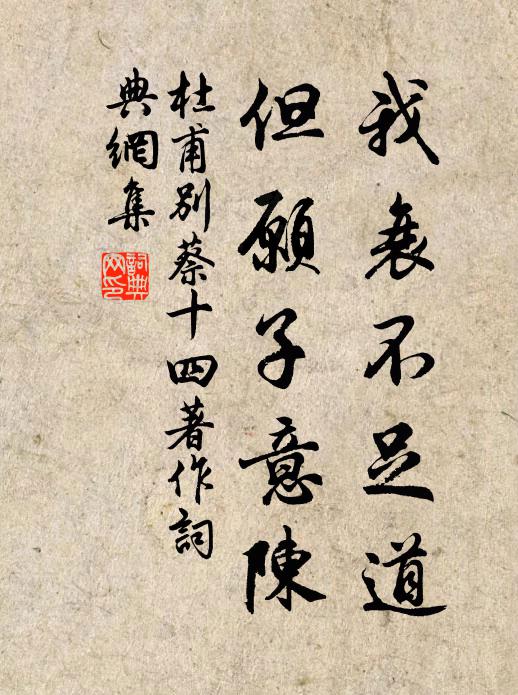 我衰不足道
但願子意陳
杜甫別蔡十四著作詞
典網集
詞典
网印